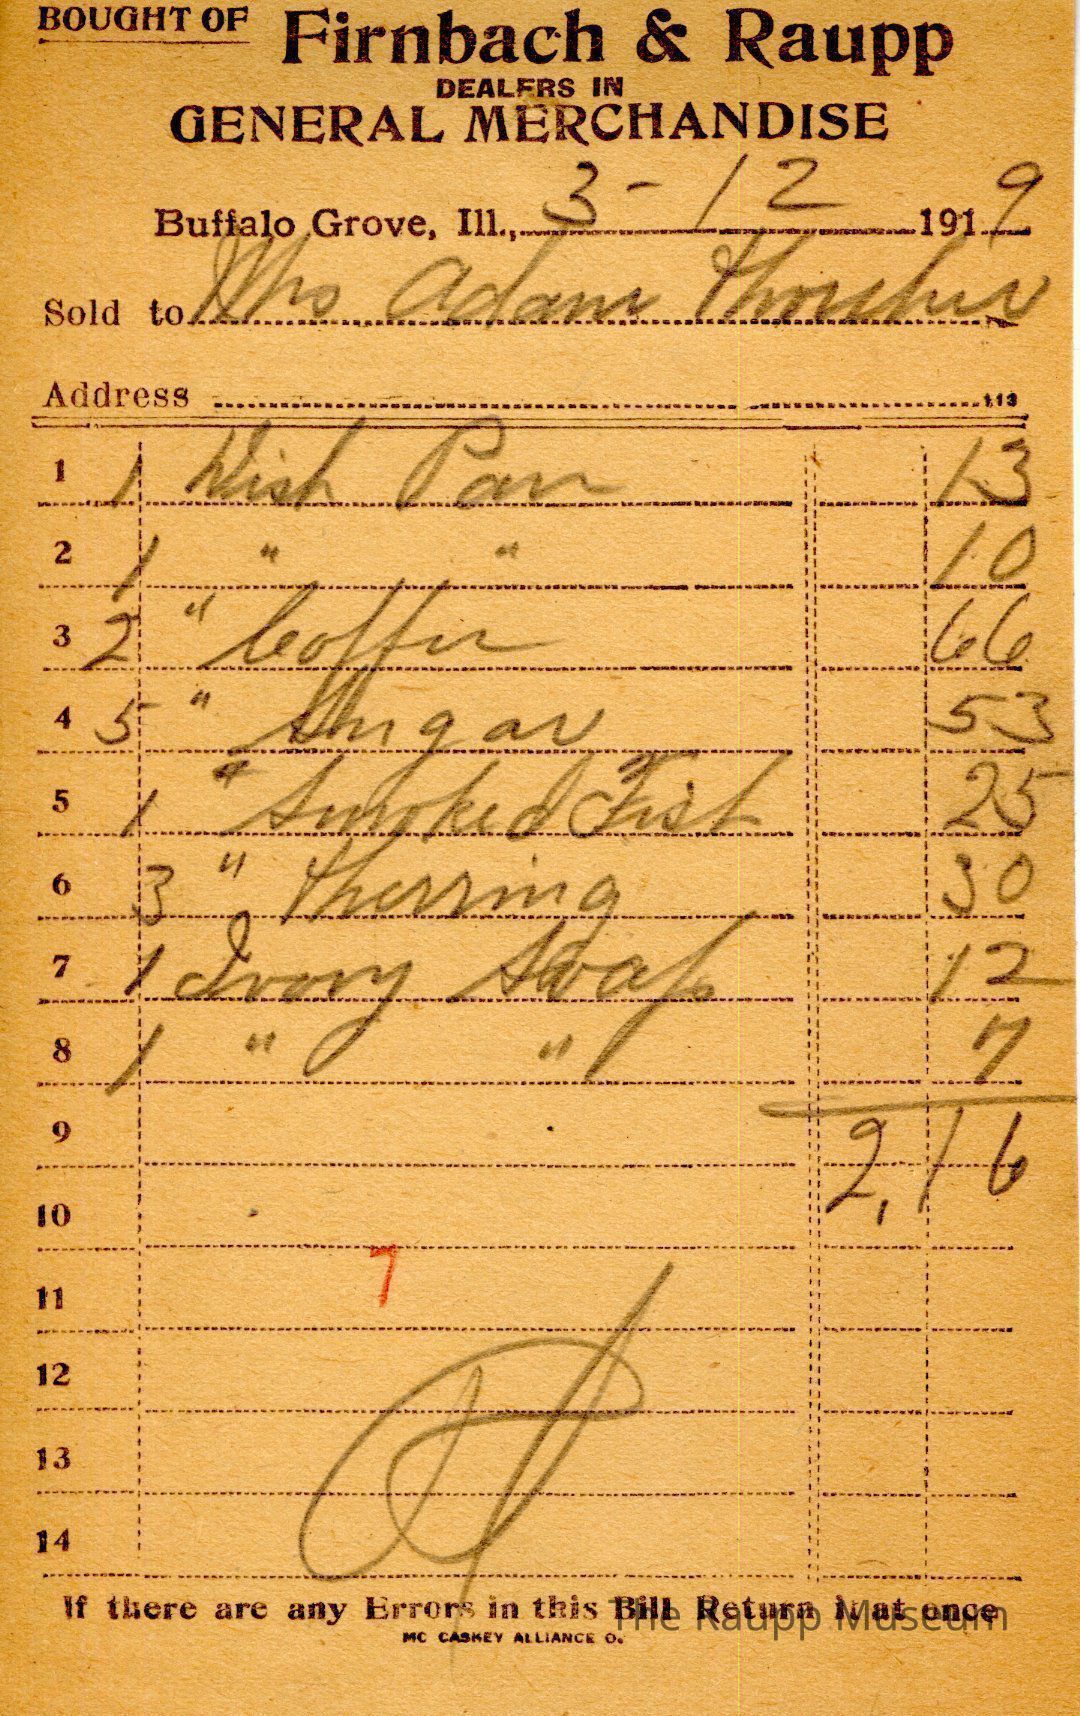 BOUGHT OF Firnbach & Raupp
DEALERS IN
GENERAL MERCHANDISE
Buffalo Grove, Ill., 3-12 1919
Sold to Mrs Adam
Address 113
1 1 Dish Pan 13
2 1 " " 10
3 2 " Coffee 66
4 5 " Sugar 53
5 1 " Smoked Fish 25
6 3 " Herring 30
7 1 Ivory Soap 12
8 1 " " 7
9 2,16
10
11 7
12
13
14
If there are any Errors in this Bill Return it at once
MC CASKEY ALLIANCE O.
The Raupp Museum